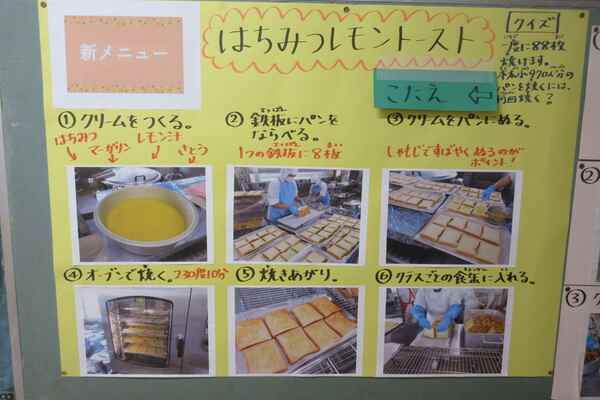 新メニュー
はちみつレモントースト
クイズ
一度に88枚
焼けます。
パンを焼くには、
何回焼く？
こたえ ⇦
①クリームをつくる。
はちみつ
マーガリン
レモン汁
さとう
②鉄板にパンを
ならべる。
1つの鉄板に8枚
③クリームをパンにぬる。
しゃもじですばやくぬるのが
ポイント！
④オーブンで焼く。230度10分
⑤焼きあがり。
⑥クラスごとの食缶に入れる。
②
③